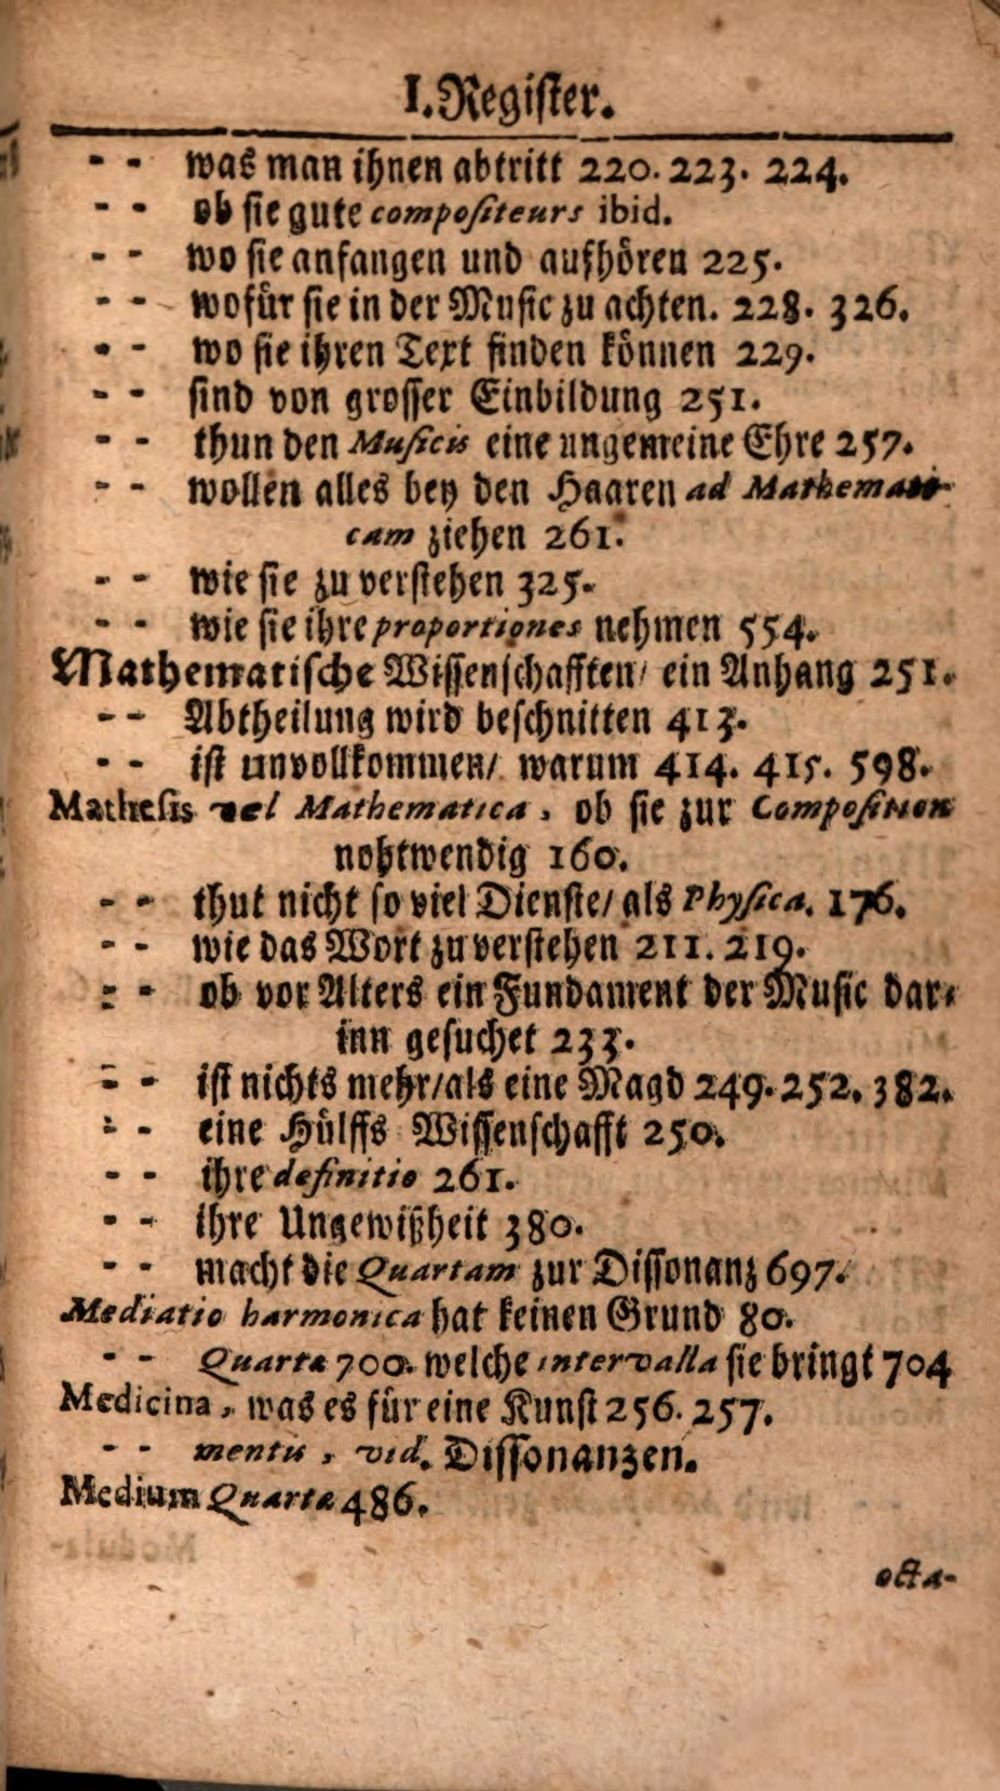 I. Register.
- - was man ihnen abtritt 220. 223. 224.
- - ob sie gute compositeurs ibid.
- - wo sie anfangen und aufhören 225.
- - wofür sie in der Music zu achten. 228. 326.
- - wo sie ihren Text finden können 229.
- - sind von grosser Einbildung 251.
- - thun den Musicis eine ungemeine Ehre 257.
- - wollen alles bey den Haaren ad Mathemati-
cam ziehen 261.
- - wie sie zu verstehen 325.
- - wie sie ihre proportiones nehmen 554.
Mathematische Wissenschafften/ ein Anhang 251.
- - Abtheilung wird beschnitten 413.
- - ist unvollkommen/ warum 414. 415. 598.
Mathesis vel Mathematica, ob sie zur Composition
nohtwendig 160.
- - thut nicht so viel Dienste/ als Physica. 176.
- - wie das Wort zu verstehen 211. 219.
- - ob vor Alters ein Fundament der Music dar-
inn gesuchet 233.
- - ist nichts mehr/als eine Magd 249. 252. 382.
- - eine Hülffs Wissenschafft 250.
- - ihre definitio 261.
- - ihre Ungewißheit 380.
- - macht die Quartam zur Dissonanz 697.
Mediatio harmonica hat keinen Grund 80.
- - Quartæ 700. welche intervalla sie bringt 704
Medicina, was es für eine Kunst 256. 257.
- - mentis, vid. Dissonanzen.
Medium Quartæ 486.
octa-